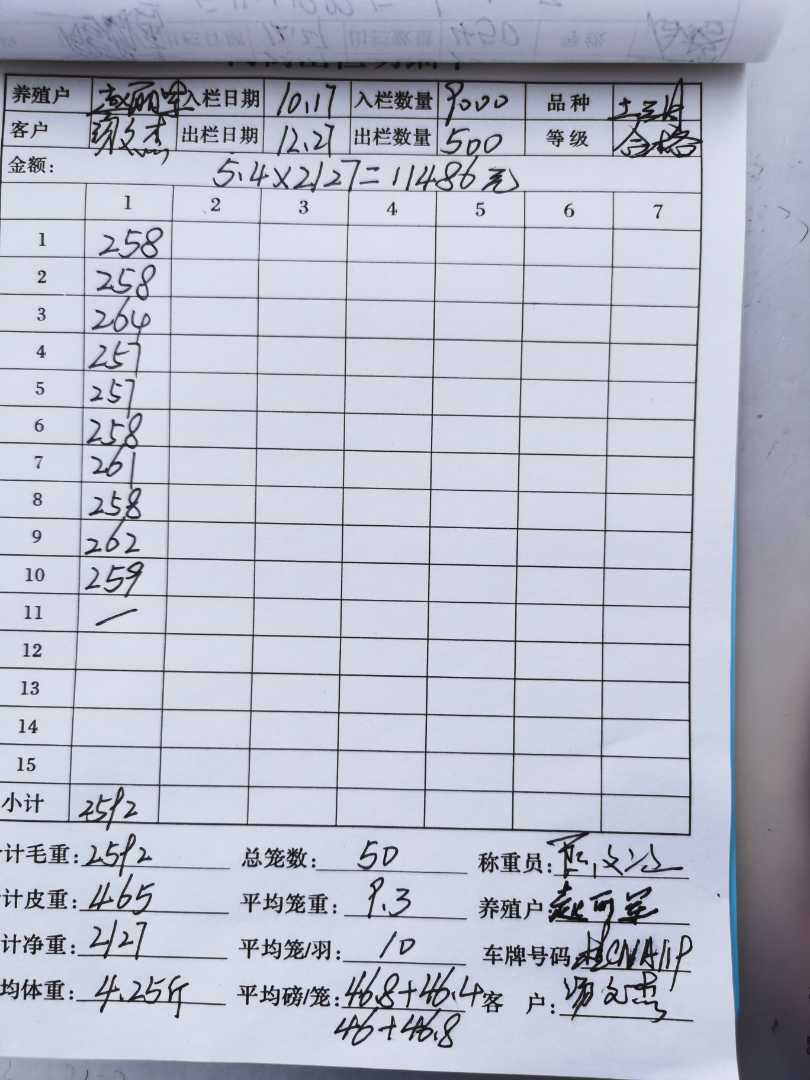 出栏日期 12.27 出栏数量 450 等级
养殖户 赵丽军 入栏日期 10.17 入栏数量 9000 品种
客户 汤文杰 出栏日期 12.27 出栏数量 500 等级 合格
金额: 5.4×2127=11486元
1 2 3 4 5 6 7
1 258
2 258
3 264
4 257
5 257
6 258
7 261
8 258
9 262
10 259
11 —
12
13
14
15
小计 2592
计毛重:2592 总笼数: 50 称重员:
计皮重:465 平均笼重: 9.3 养殖户 赵丽军
计净重:2127 平均笼/羽: 10 车牌号码
均体重: 4.25斤 平均磅/笼:46.8+46.4 客 户: 汤文杰
46+46.8